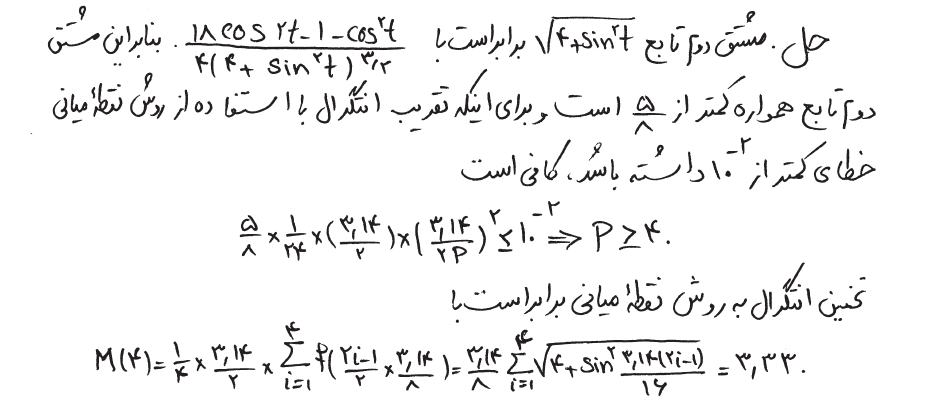 حل. مشتق دوم تابع √(۴+sin²t) برابر است با (۱۸cos ۲t-۱-cos²t)/(۴(۴+ sin²t)^(۳/۲)). بنابراین مشتق
دوم تابع همواره کمتر از ۵/۸ است و برای اینکه تقریب انتگرال با استفاده از روش نقطهٔ میانی
خطای کمتر از ۱۰^-۲ داشته باشد، کافی است
۵/۸ × ۱/۲۴ × (۳,۱۴/۲) × (۳,۱۴/۲P)^۲ ≤ ۱۰^-۲ ⇒ P ≥ ۴.
تخمین انتگرال به روش نقطهٔ میانی برابر است با
M(۴) = ۱/۴ × ۳,۱۴/۲ × Σ_{i=۱}^{۴} f((۲i-۱)/۲ × ۳,۱۴/۸) = ۳,۱۴/۸ Σ_{i=۱}^{۴} √(۴+sin² (۳,۱۴(۲i-۱))/۱۶) = ۳,۳۳.